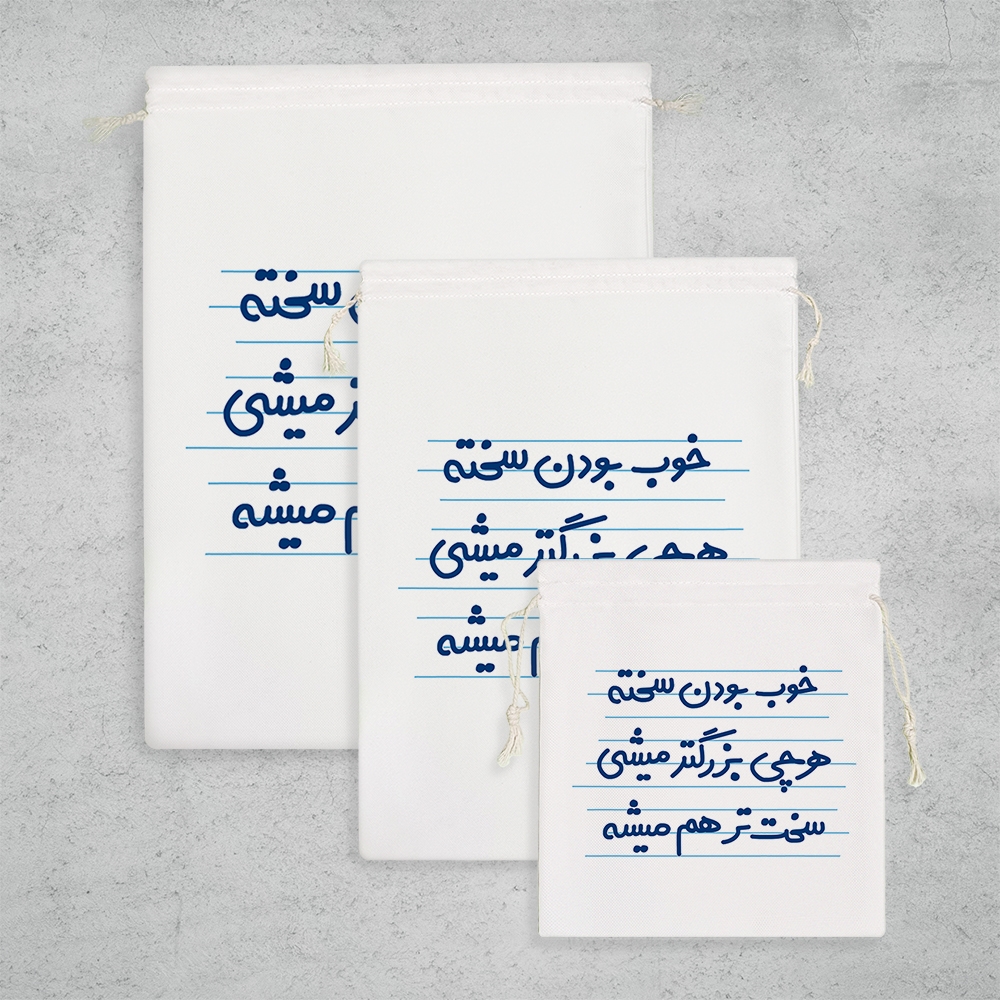 سخته
میشی
میشه
خوب بودن سخته
هرچی بزرگتر میشی
میشه
خوب بودن سخته
هرچی بزرگتر میشی
سخت تر هم میشه